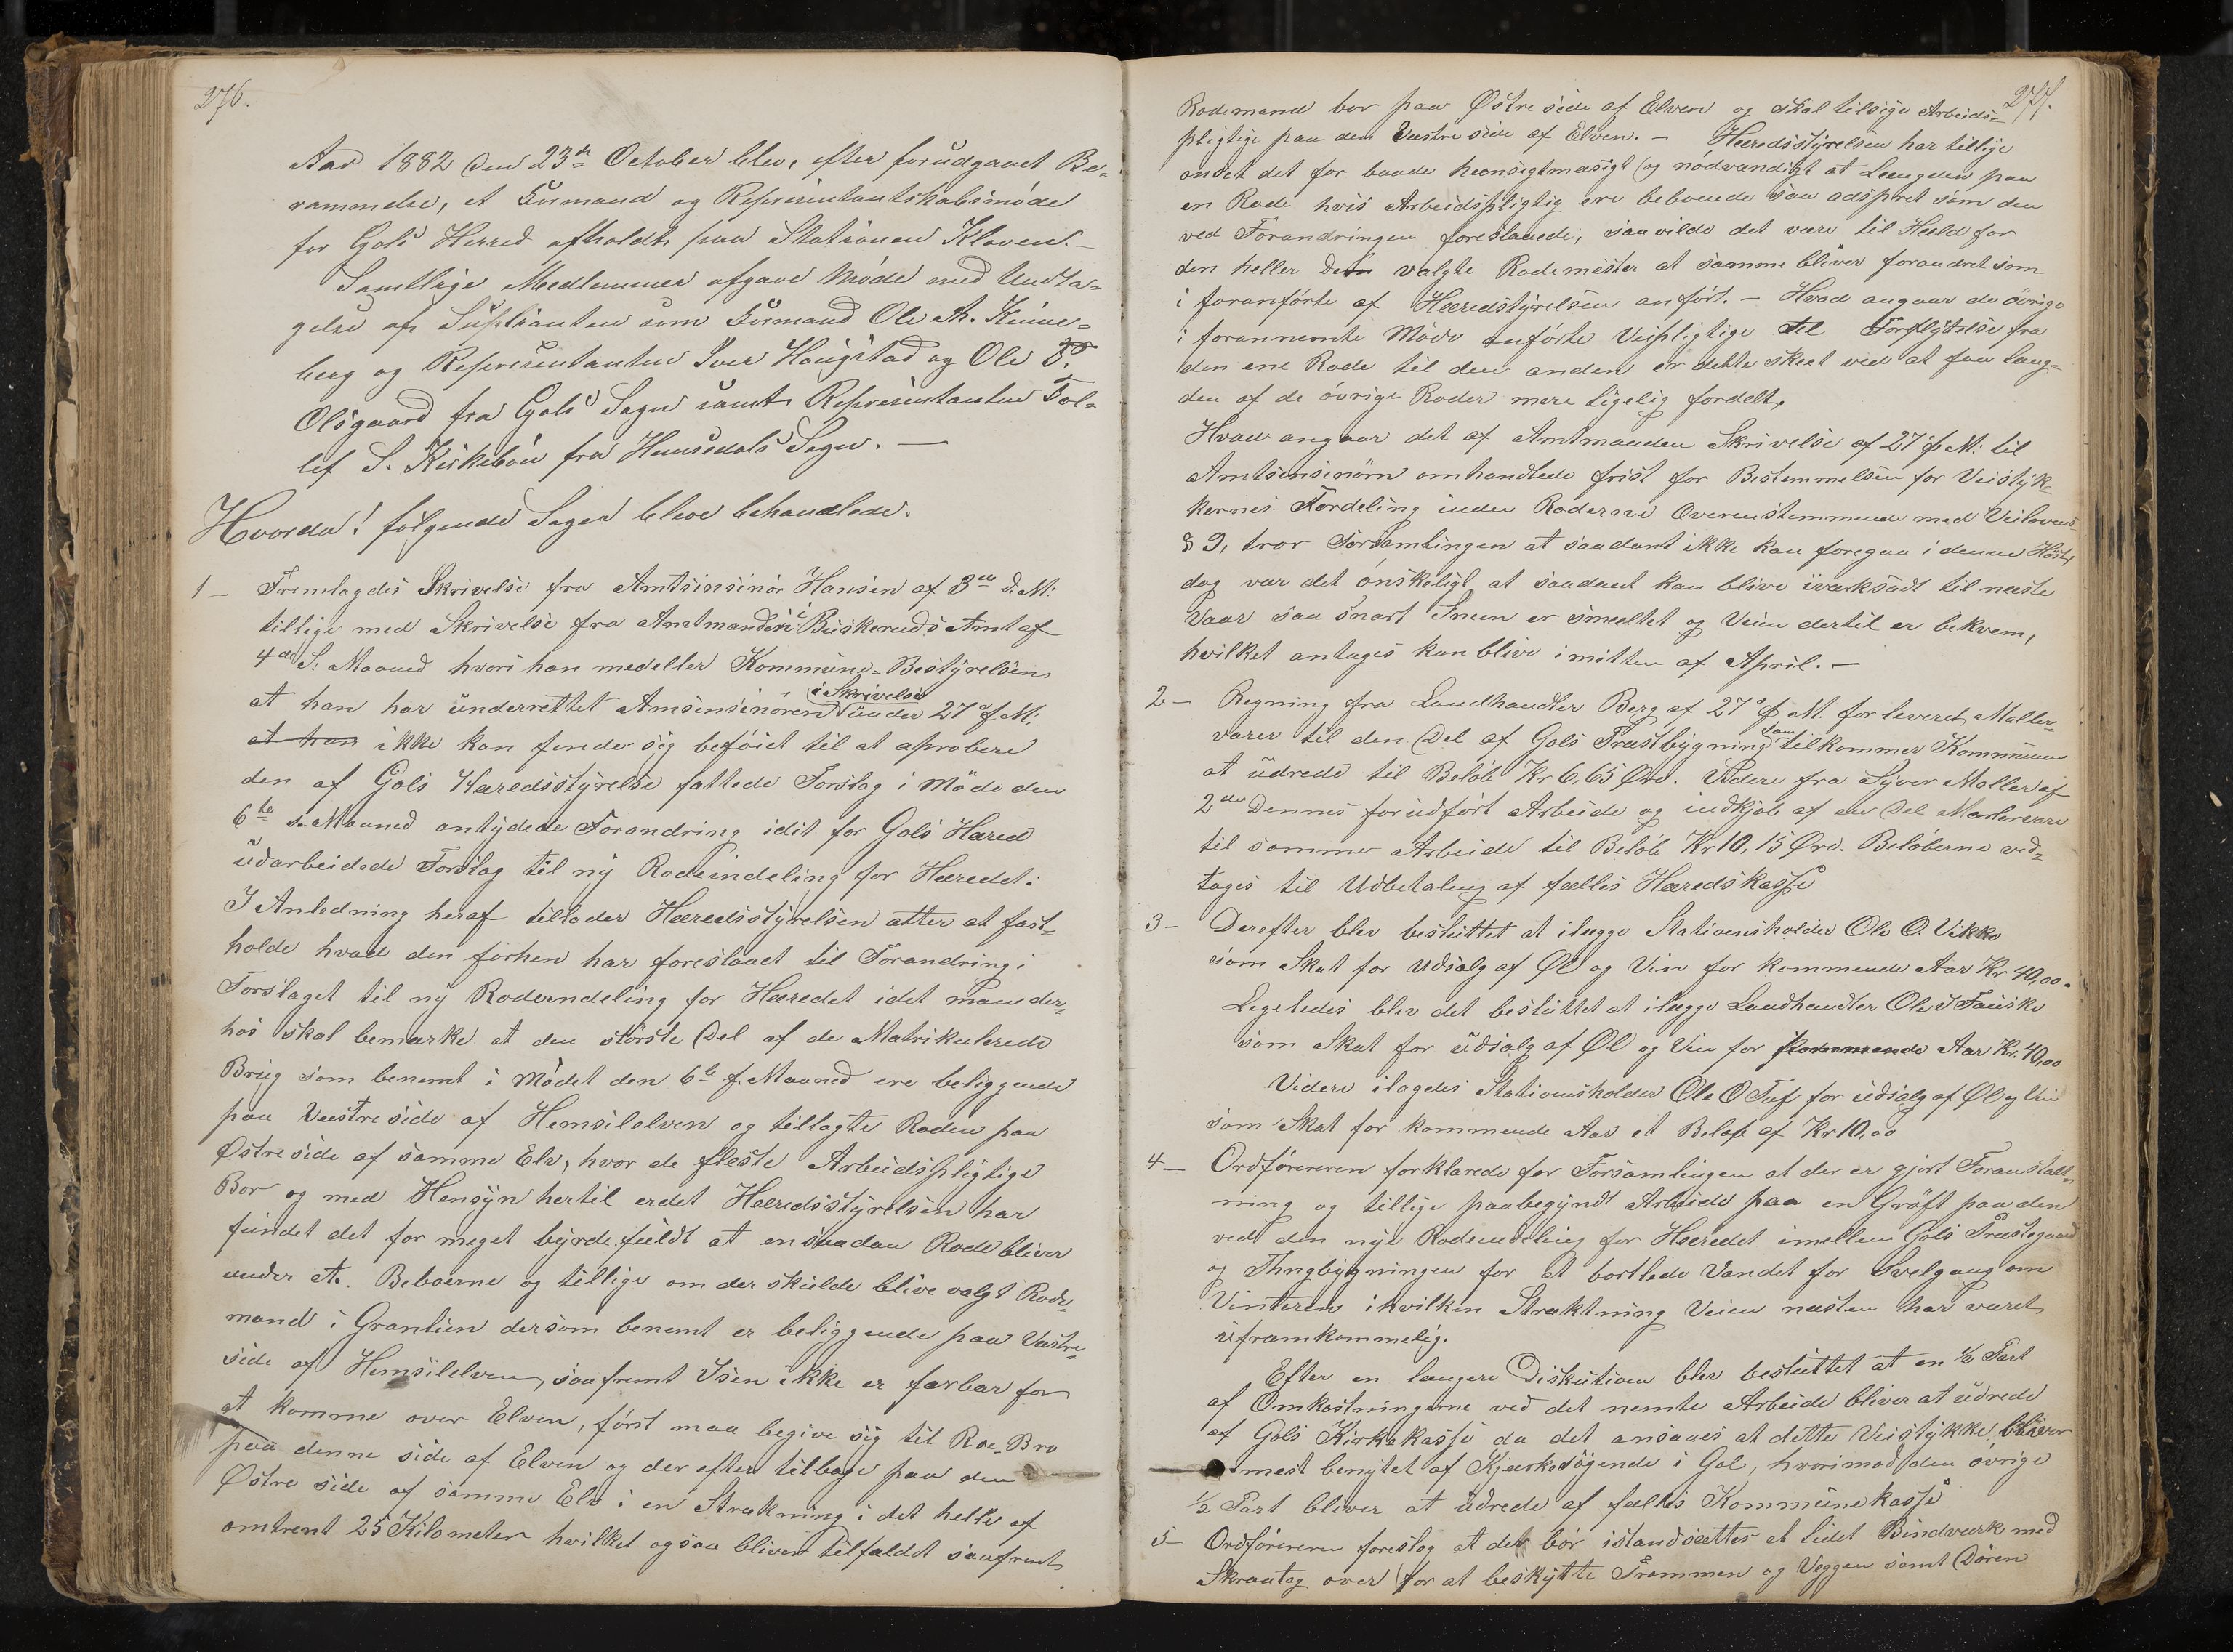 276.
Aar 1882 den 23de October blev, efter forudgaaet Be-
rammelse, et Formand og Representantskabsmøde
for Gols Herred afholdt paa Stationen Kloven. —
Samtlige Medlemmer afgave Møde med Undta-
gelse af Suplianten som Formand Ole Th.
berg og Representanten Iver Haugstad og Ole
Olsgaard fra Gols Sogn samt Representanten Tol-
lef S. Kirkebøn fra Hemsedals Sogn. —
Hvorda! følgende Sager bleve behandlede.
1 — Fremlagdes Skrivelse fra Amtsinsinør Hansen af 3die d. M.
tillige med Skrivelse fra Amtmanden i Buskeruds Amt af
4de S. Maaned hvori han medeller Kommune-Bestyrelsen
at han har underrettet Amsinsinøren i Skrivelse under 27de f. M.
at han ikke kan finde sig beføiet til at aprobere
den af Gols Hæredsstyrelse fattede Forslag i Møde den
6te s. Maaned antydede Forandring idit for Gols Hæred
udarbeidede Forslag til ny Rodeindeling for Hæredet:
I Anledning heraf tillader Hæredsstyrelsen atter at fast-
holde hvad den forhen har foreslaaet til Forandring i
Forslaget til ny Rodeindeling for Hæredet idet man der-
hos skal bemærke at den største Del af de Matrikulerede
Brug som benemt i Mødet den 6te f. Maaned ere beliggende
paa Vestre side af Hemsilelven og tillagte Roden paa
Østre side af samme Elv, hvor de fleste Arbeidspligtige
Bor og med Hensyn hertil erdet Hæredsstyrelsen har
fundet det for meget byrdefuldt at ensaadan Rode bliver
under et. Beboerne og tillige om der skulde blive valgt Rode-
mand i Granlien dersom benemt er beliggende paa Vestre-
side af Hemsilelven, saafremt Isen ikke er farbar for
at komme over Elven, først maa begive sig til Roe-Bro
paa denne side af Elven og der efter tilbage paa den
Østre side af samme Elv i en Strækning i det helle af
omtrent 25 Kilometer hvilket ogsaa bliver tilfældet saafremt
277.
Rodemand bor paa Østre side af Elven og skal tilsige Arbeids-
pligtige paa den Vestre side af Elven. — Hæredsstyrelsen har tillige
anset det for baade hensigtmæsigt og nødvendigt at Længden paa
en Rode hvis Arbeidspligtig ere beboende saa adspret som den
ved Forandringen foreslaaede, saa vilde det være til Held for
den heller valgte Rodemester at samme bliver forandret som
i foranførte af Hæredstyrelsen anført. — Hvad angaar de øvrige
i forannemte Møde anførte Veipligtige til Forflytelse fra
den ene Rode til den anden er dette skeet ved at faa Læng-
den af de øvrige Roder mere ligelig fordelt.
Hvad angaar det af Amtmanden Skrivelse af 27 f. M. til
Amtsinsinørn omhandlede frist for Bestemmelsen for Veistyk-
kernes Fordeling inden Roderne Overenstemmende med Veilovens
§ 9, tror Forsamlingen at saadant ikke kan foregaa i denne Høst,
dog var det ønskeligt at saadant kan blive iværksadt til næste
Vaar saa snart Sneen er smæltet og Veien dertil er bekvem,
hvilket antages kan blive i mitten af April. —
2 — Regning fra Landhandler Berg af 27de f. M. for leveret Maller-
varer til den Del af Gols Præstbygning som tilkommer Kommunen
at udrede til Beløb Kr 6,65 Øre. Videre fra Syver Moller af
2den Dennes for udført Arbeide og indkjøb af en Del
til samme Arbeide til Beløb Kr 10,15 Øre. Beløberne ved-
tages til Udbetaling af fælles Hæredskasse
3 — Derefter blev besluttet at ilegge Stationsholder Ole O. Vikko
som Skat for Udsalg af Øl og Vin for kommende Aar Kr 40,00.
Legeledes blev det besluttet at ilegge Landhandler Ole Fauske
som Skat for udsalg af Øl og Vin for kommende Aar Kr. 40,00
Videre ilagdes Stationsholder Ole O Tuf for udsalg af Øl og Vin
som Skat for kommende Aar et Beløb af Kr 10,00
4 — Ordførereren forklarede for Forsamlingen at der er gjort Foranstalt-
ning og tillige paabegyndt Arbeide paa en Grøft paa den
ved den nye Rodeindeling for Hæredet imellem Gols Præstegaard
og Thingbygningen for at bortlede Vandet for Svelgang om
Vinteren i hvilken Strækning Veien næsten har været
uframkommelig.
Efter en længere Diskution blev besluttet at en ½ Part
af Omkostningerne ved det nemte Arbeide bliver at udrede
af Gols Kirkekasse da det ansaaes at dette Veistykke bliver
mest benytet af Kjærkesøgende i Gol, hvorimod den øvrige
½ Part bliver at udrede af fælles Kommunekasse
5 — Ordførereren foreslog at der bør istandsættes et lidet Bindværk med
Skraatag over for at beskytte Trammen og Veggen samt Døren